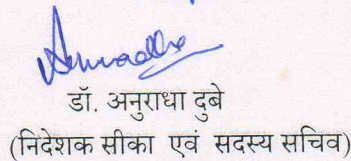 Anuradha
डॉ. अनुराधा दुबे
(निदेशक सीका एवं सदस्य सचिव)